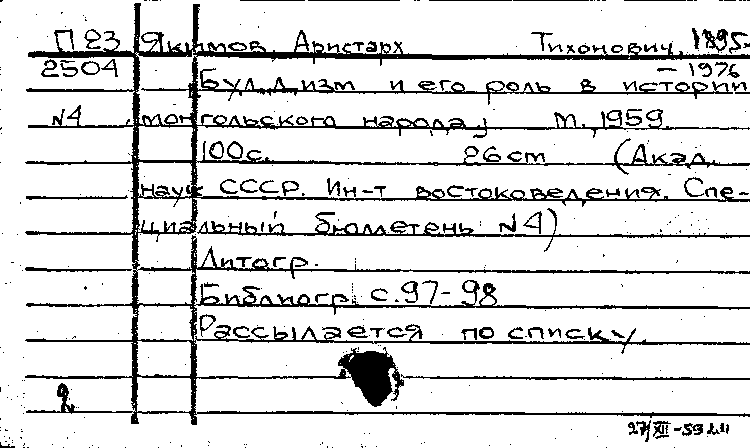 П 23 Якимов, Аристарх Тихонович, 1895-
2504 - 1976
Буддизм и его роль в истории
N4 монгольского народа, М., 1959.
100с. 26cm (Акад.
наук СССР. Ин-т востоковедения. Спе-
циальный бюллетень N4)
Литогр.
Библиогр. с. 97-98
Рассылается по списку.
2
27/XII-59